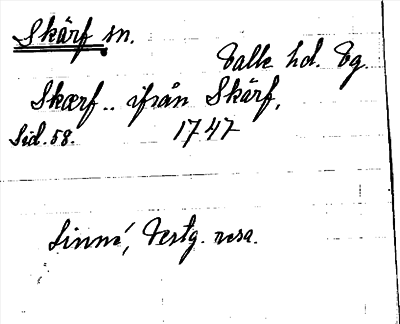 Skärf sn.
Valle hd. Vg.
Skærf.. ifrån Skärf,
Sid. 58. 1747
Linné, Vestg. resa.